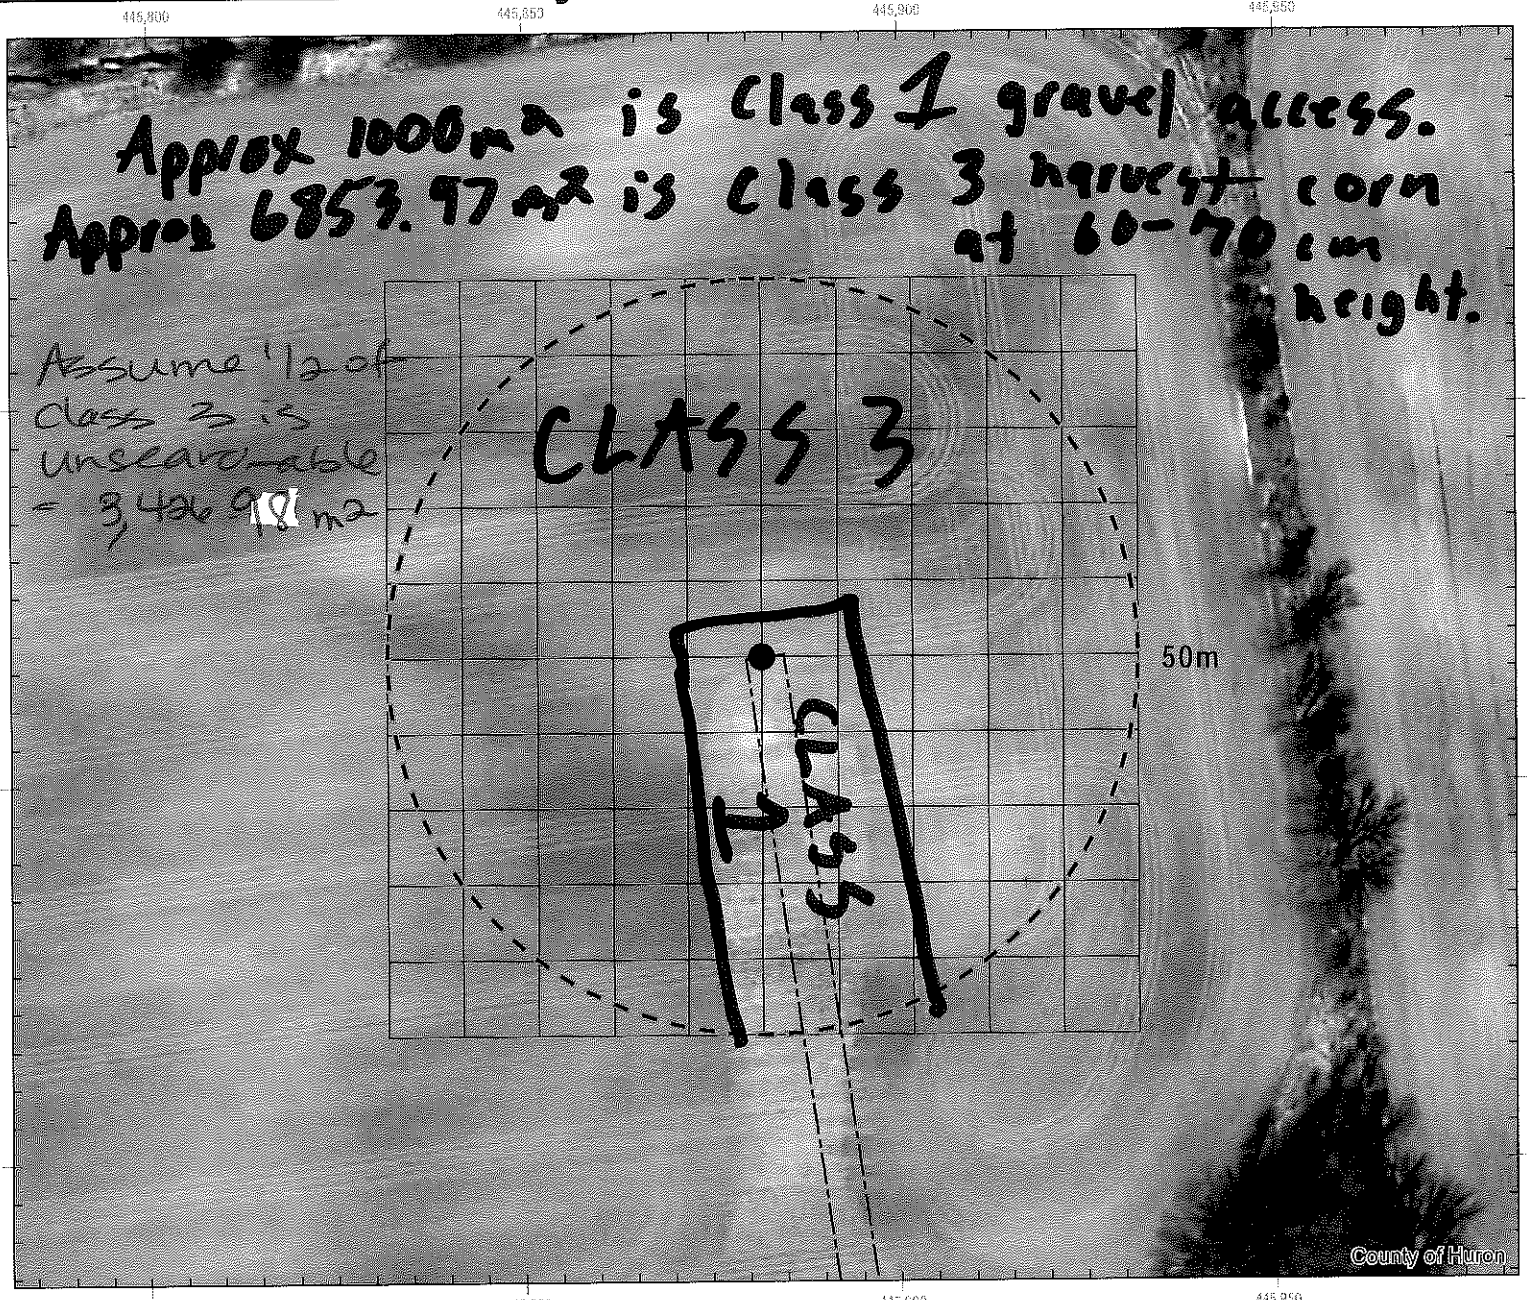 445,800 445,850 445,900 445,950
Approx 1000m² is Class 1 gravel access.
Approx 6853.97m² is Class 3 harvest corn
at 60-70 cm
height.
Assume 1/2 of
class 3 is
unsearchable
= 3,426 98 m2
CLASS 3
50m
CLASS
1
County of Huron